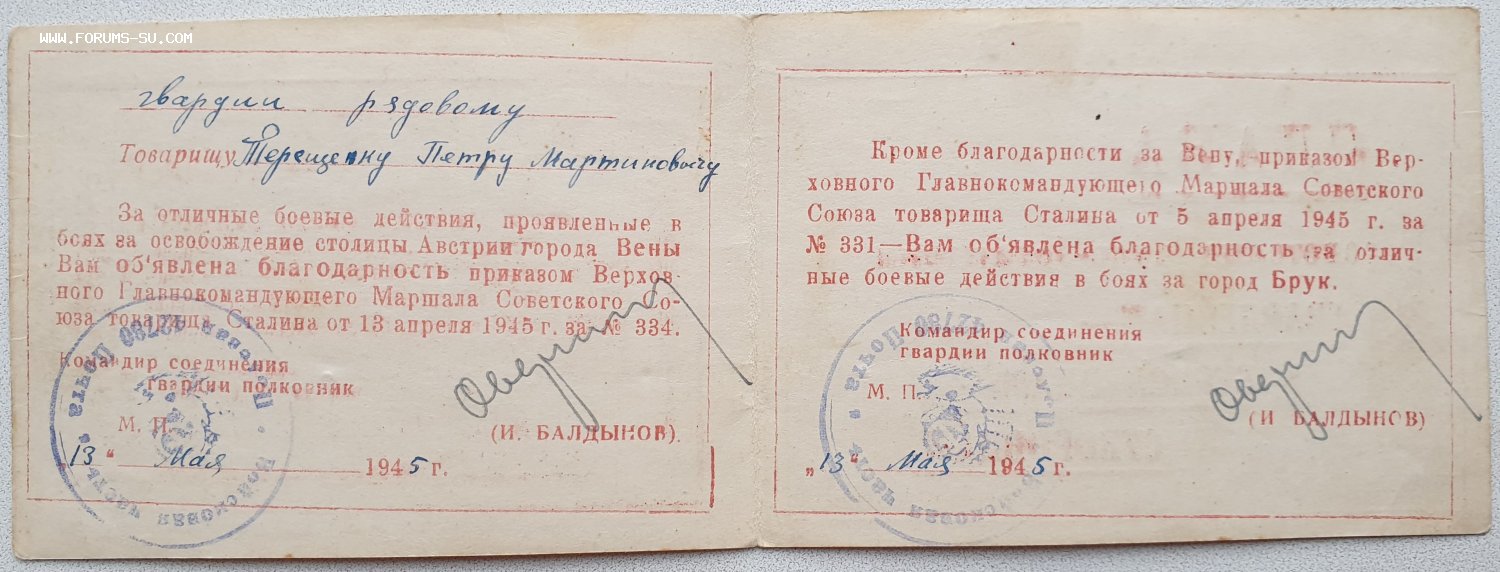 WWW.FORUMS-SU.COM
гвардии рядовому
Товарищу Терещенку Петру Мартиновичу
За отличные боевые действия, проявленные в
боях за освобождение столицы Австрии города Вены
Вам об'явлена благодарность приказом Верхов-
ного Главнокомандующего Маршала Советского Со-
юза товарища Сталина от 13 апреля 1945 г. за № 334.
Командир соединения
гвардии полковник
М. П.
(И. БАЛДЫНОВ).
„13" Мая 1945 г.
Войсковая часть • Полевая Почта •
Кроме благодарности за Вену, приказом Вер-
ховного Главнокомандующего Маршала Советского
Союза товарища Сталина от 5 апреля 1945 г. за
№ 331—Вам об'явлена благодарность за отлич-
ные боевые действия в боях за город Брук.
Командир соединения
гвардии полковник
М. П.
(И БАЛДЫНОВ)
„13" Мая 1945 г.
Войсковая часть • Полевая Почта •